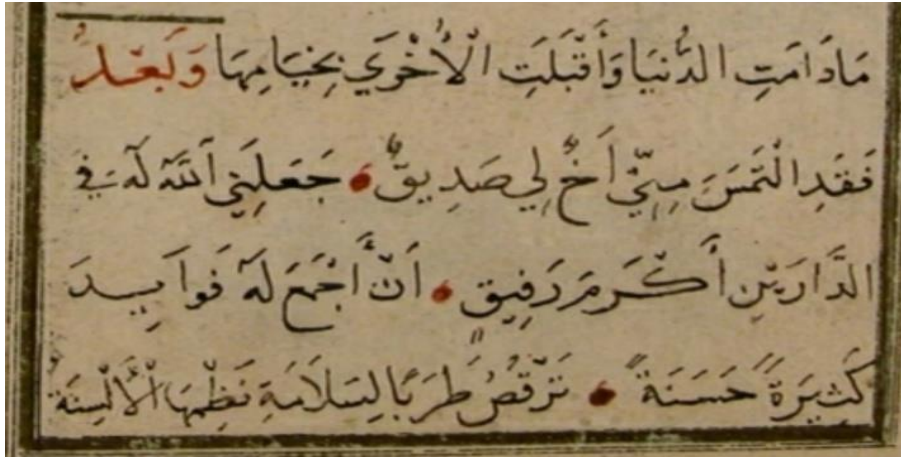 مَادَامَتِ الدُّنيَا وَأَقْبَلَتِ الْأُخْرَي بِخِيَامِهَا وَبَعْدُ
فَقَدِ الْتَمَسَ مِنِّي أَخٌ لِي صَدِيقٌ جَعَلَنِي اَللّٰهُ لَهُ فِي
الدَّارَيْنِ أَكْرَمَ رَفِيقٍ اَنْ أَجْمَعَ لَهُ فَوَايِدَ
كَثِيرَةً حَسَنَةً تَرْقُصُ طَرَبًا لِسَلَاسَةِ نَظْمِهَا اْلأَلْسِنَةُ